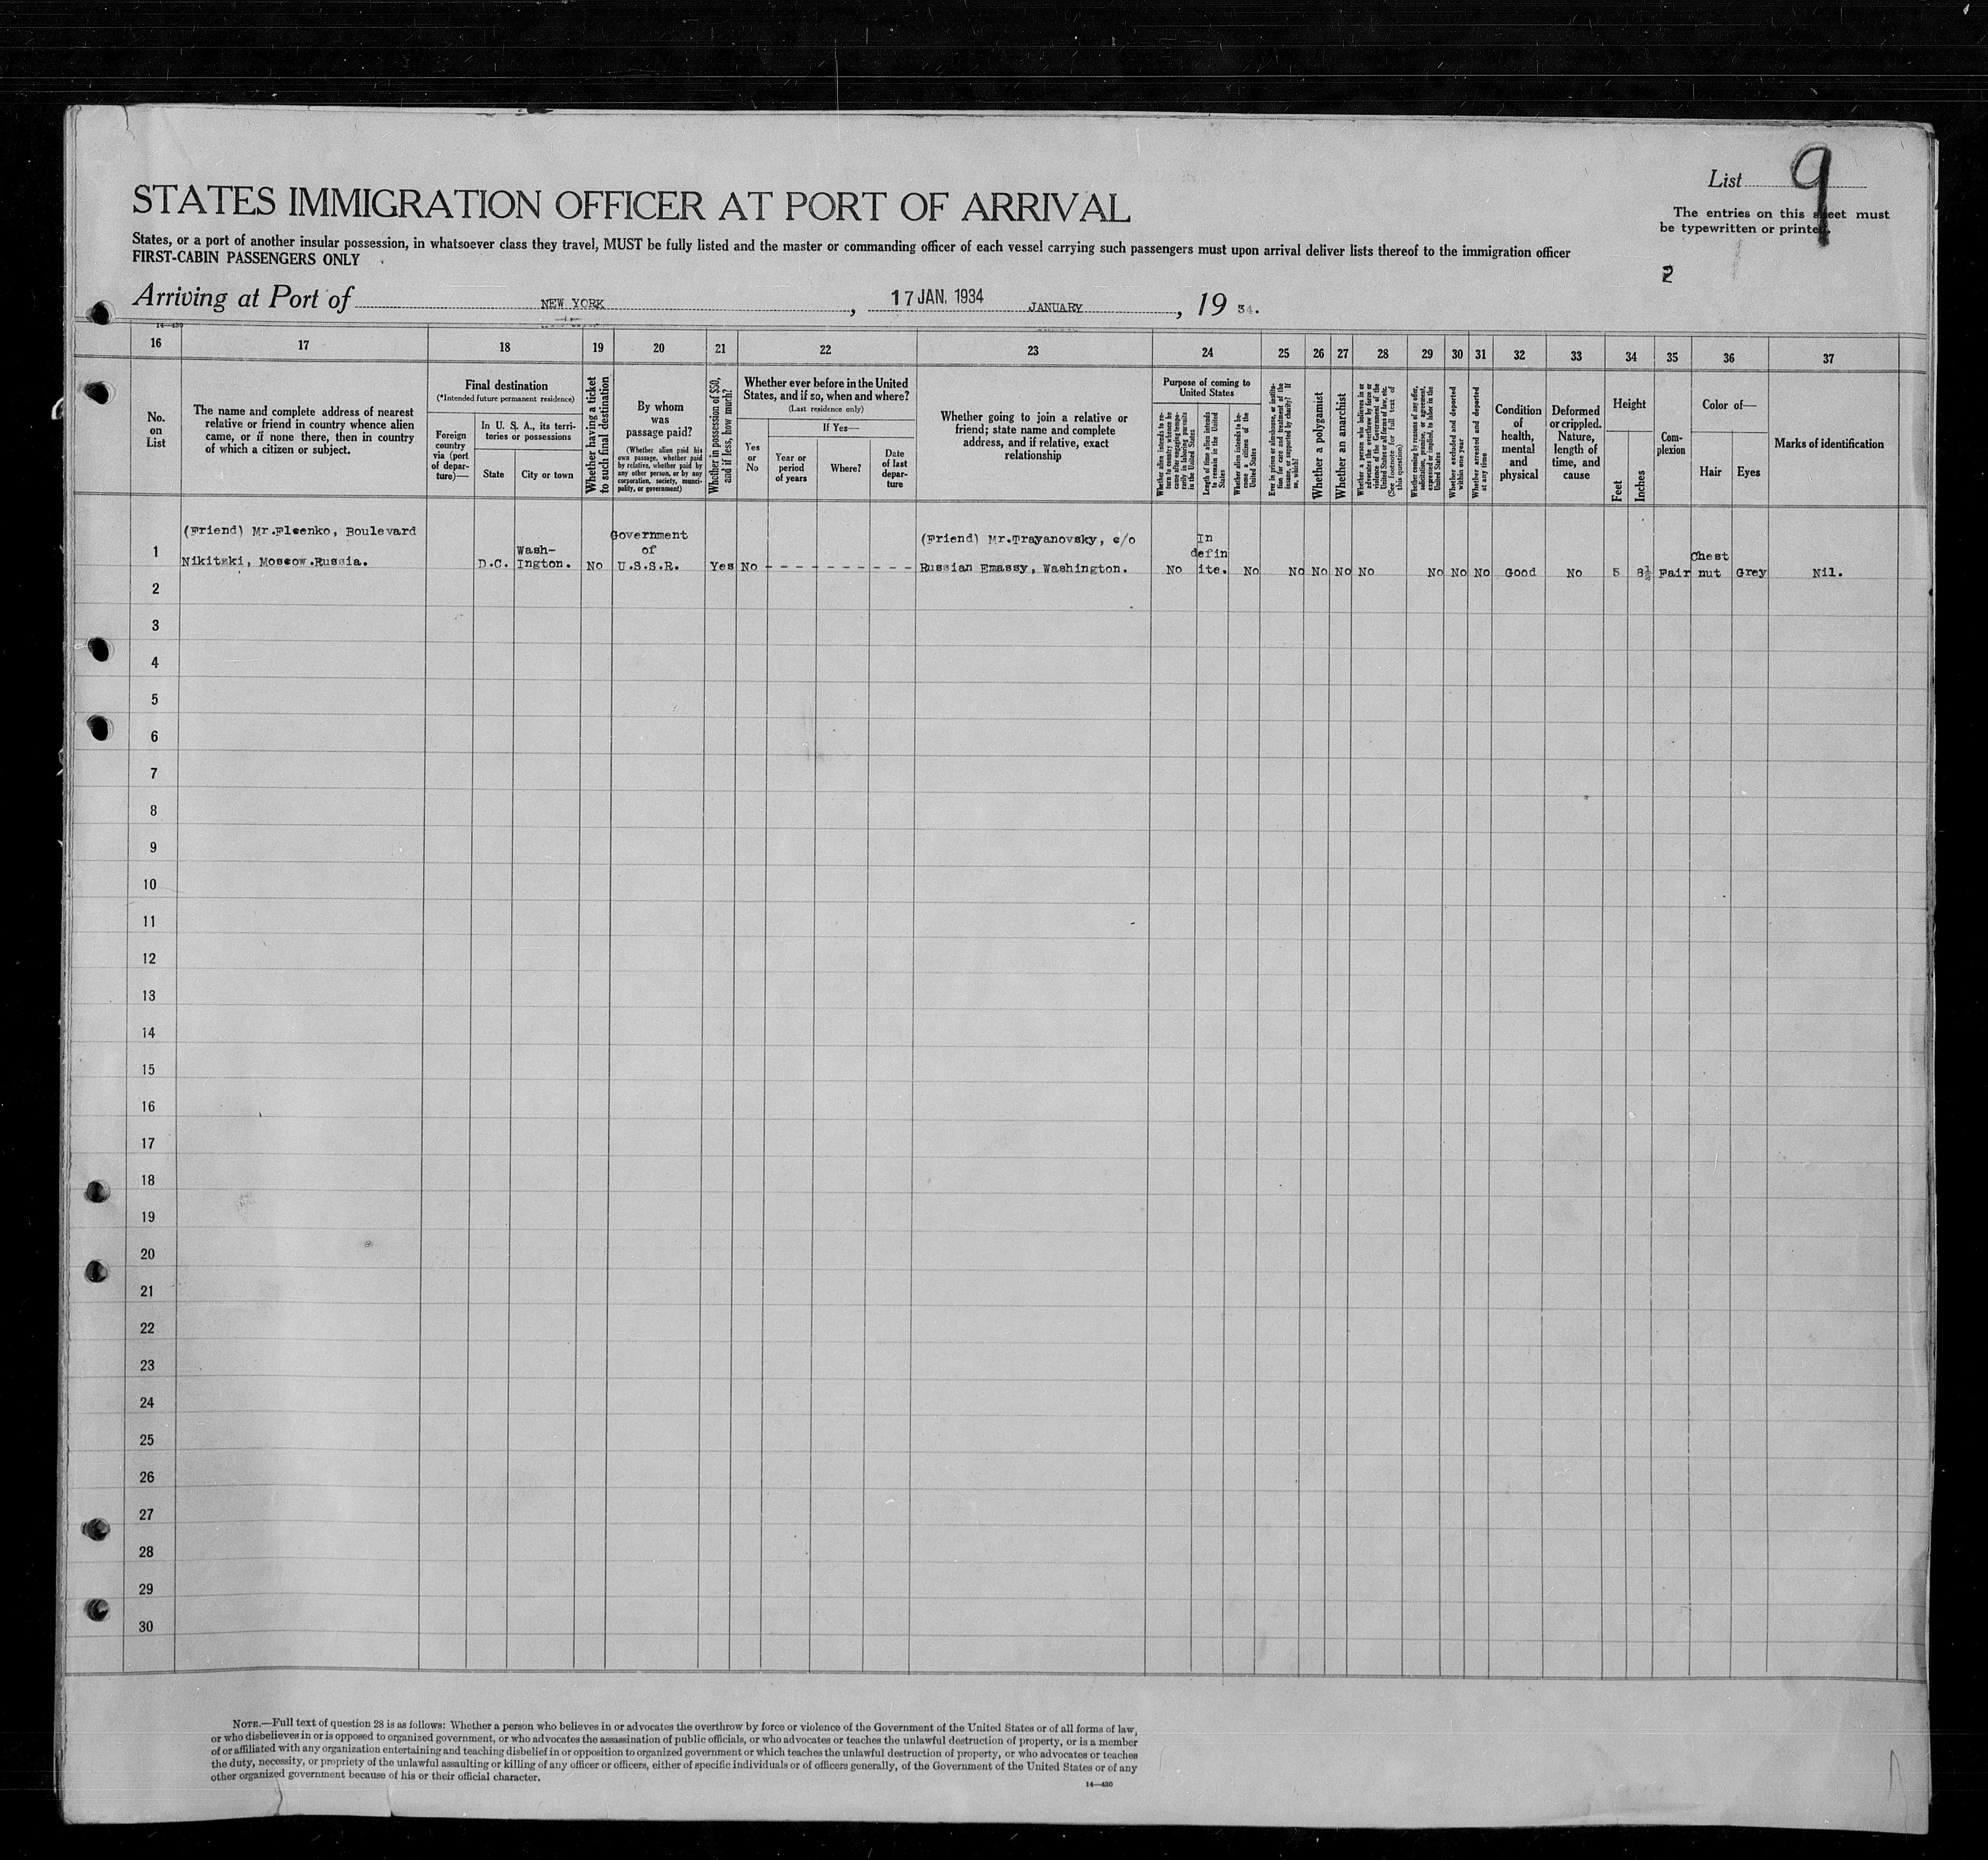 List 9
STATES IMMIGRATION OFFICER AT PORT OF ARRIVAL
The entries on this sheet must
be typewritten or printed.
States, or a port of another insular possession, in whatsoever class they travel, MUST be fully listed and the master or commanding officer of each vessel carrying such passengers must upon arrival deliver lists thereof to the immigration officer
FIRST-CABIN PASSENGERS ONLY
2
Arriving at Port of NEW YORK, 17 JAN. 1934 JANUARY, 19 34.
14—430
16 17 18 19 20 21 22 23 24 25 26 27 28 29 30 31 32 33 34 35 36 37
No.
on
List
The name and complete address of nearest
relative or friend in country whence alien
came, or if none there, then in country
of which a citizen or subject.
Final destination
(*Intended future permanent residence)
Foreign
country
via (port
of depar-
ture)—
In U. S. A., its terri-
tories or possessions
State
City or town
Whether having a ticket
to such final destination
By whom
was
passage paid?
(Whether alien paid his
own passage, whether paid
by relative, whether paid by
any other person, or by any
corporation, society, munici-
pality, or government)
Whether in possession of $50,
and if less, how much?
Whether ever before in the United
States, and if so, when and where?
(Last residence only)
Yes
or
No
If Yes—
Year or
period
of years
Where?
Date
of last
depar-
ture
Whether going to join a relative or
friend; state name and complete
address, and if relative, exact
relationship
Purpose of coming to
United States
Whether alien intends to re-
turn to country whence he
came after engaging tempo-
rarily in laboring pursuits
in the United States
Length of time alien intends
to remain in the United
States
Whether alien intends to be-
come a citizen of the
United States
Ever in prison or almshouse, or institu-
tion for care and treatment of the
insane, or supported by charity? If
so, which?
Whether a polygamist
Whether an anarchist
Whether a person who believes in or
advocates the overthrow by force or
violence of the Government of the
United States or all forms of law, etc.
(See footnote for full text of
this question)
Whether coming by reasons of any offer,
solicitation, promise, or agreement,
expressed or implied, to labor in the
United States
Whether excluded and deported
within one year
Whether arrested and deported
at any time
Condition
of
health,
mental
and
physical
Deformed
or crippled.
Nature,
length of
time, and
cause
Height
Feet
Inches
Com-
plexion
Color of—
Hair
Eyes
Marks of identification
1
(Friend) Mr.Fleenko, Boulevard
Nikitzki, Moscow.Russia.
D.C.
Wash-
Ington.
No
Government
of
U.S.S.R.
Yes
No - - - - - - - - -
(Friend) Mr.Trayanovsky, c/o
Russian Emassy, Washington.
No
In
defin
ite.
No
No No No No No No No Good No 5 8½ Fair
Chest
nut
Grey
Nil.
2
3
4
5
6
7
8
9
10
11
12
13
14
15
16
17
18
19
20
21
22
23
24
25
26
27
28
29
30
NOTE.—Full text of question 28 is as follows: Whether a person who believes in or advocates the overthrow by force or violence of the Government of the United States or of all forms of law,
or who disbelieves in or is opposed to organized government, or who advocates the assassination of public officials, or who advocates or teaches the unlawful destruction of property, or is a member
of or affiliated with any organization entertaining and teaching disbelief in or opposition to organized government or which teaches the unlawful destruction of property, or who advocates or teaches
the duty, necessity, or propriety of the unlawful assaulting or killing of any officer or officers, either of specific individuals or of officers generally, of the Government of the United States or of any
other organized government because of his or their official character.
14—430